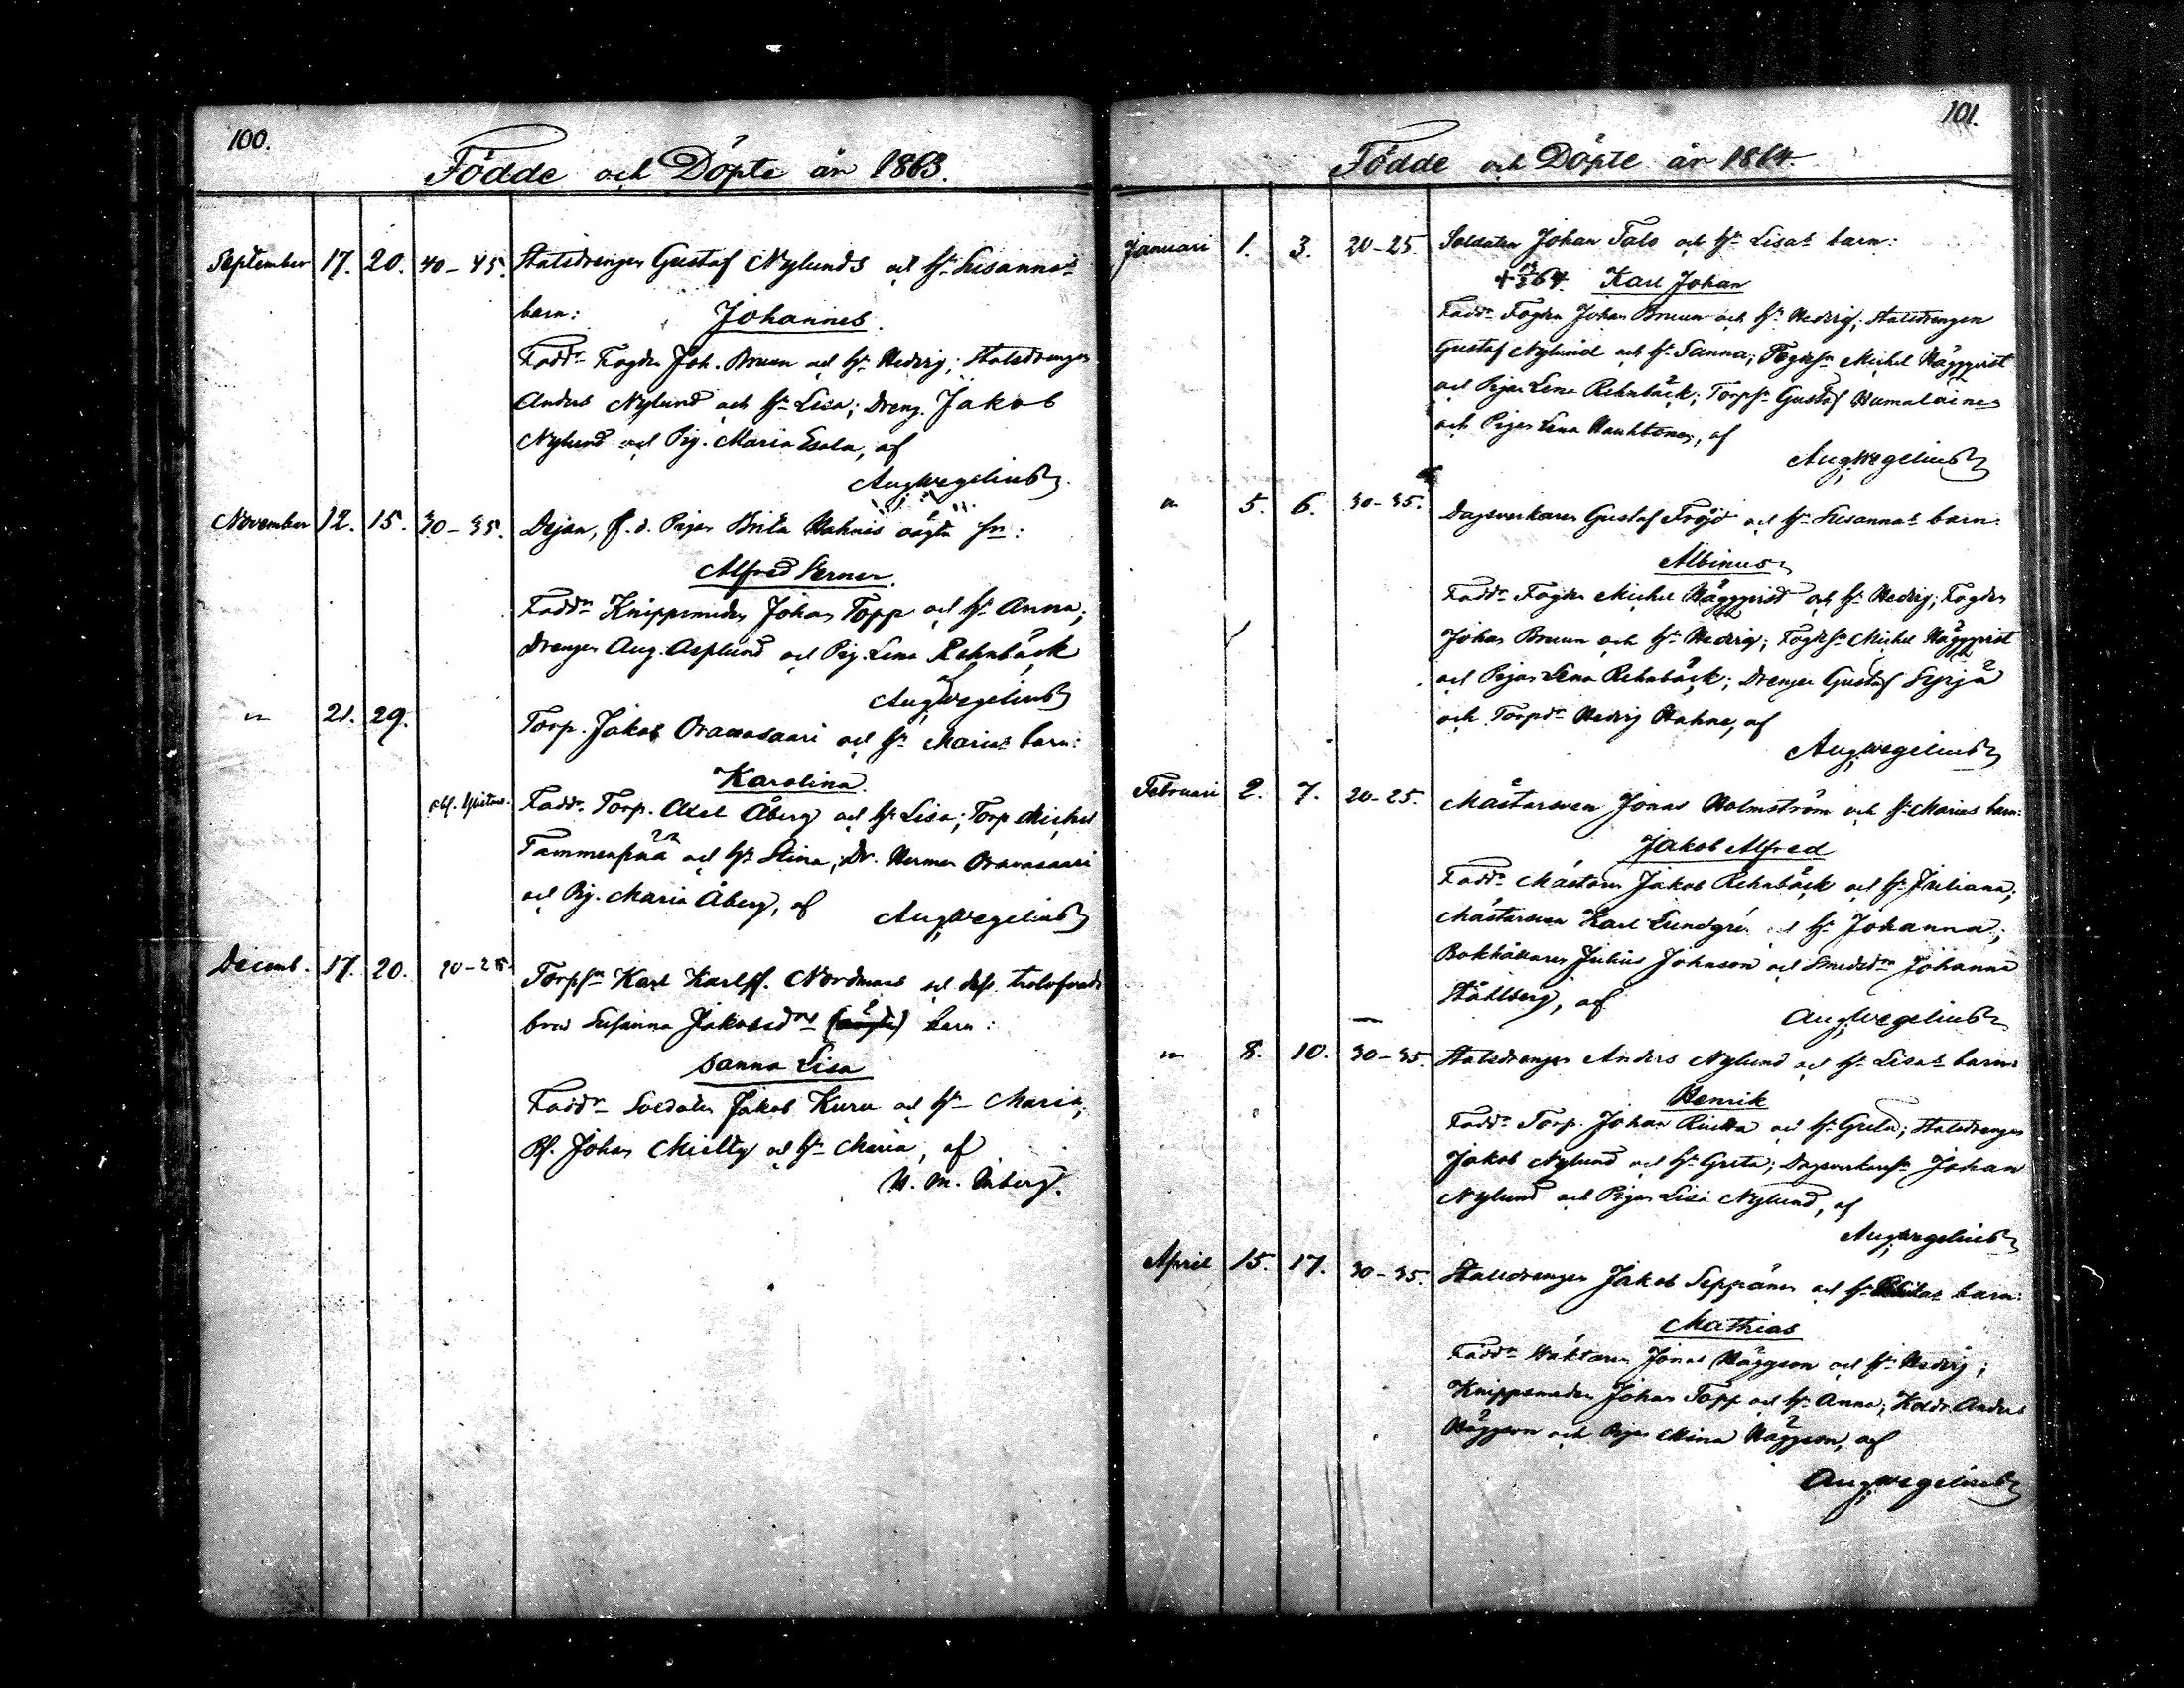 100.
Födde och Döpte år 1863.
September 17. 20. 40-45. Statsdrengen Gustaf Nylunds och h. Susannas
barn: Johannes.
Fadd. Fogden Joh. Bruun och h. Hedvig; Statsdrengen
Anders Nylund och h. Lisa; Dreng. Jakob
Nylund och Pig. Maria Esala, af
AugWegelius
November 12. 15. 30-35. Dejan, f.d. Pigan Brita Hahnis oägta sn:
Alfred Verner.
Fadd. Knippsmeden Johan Topp och h. Anna;
Drengen Aug. Asplund och Pig. Lena Rehnbäck
af
AugWegelius
" 21. 29. Torp. Jakob Oravasaari och h. Marias barn:
Karolina.
Fadd. Torp. Axel Åberg och h. Lisa; Torp. Michel
Tammenpää och h. Stina; Dr. Herman Oravasaari
och Pig. Maria Åberg, af AugWegelius
Decemb. 17. 20. 20-25. Torpsn Karl Karlss. Nordman och dess trolofvade
brud Susanna Jakobsdr barn:
Sanna Lisa
Fadd. Soldaten Jakob Kuru och h. Maria;
Johan och h. Maria, af
101.
Födde och Döpte år 1864.
Januari 1. 3. 20-25. Soldaten Johan Talo och h. Lisas barn:
64. Karl Johan
Fadd. Fogden Johan Bruun och h. Hedvig; Statsdrengen
Gustaf Nylund och h. Sanna; Fogdesn Michel Häggqvist
och Pigan Lena Rehnbäck; Torpsn Gustaf Humaloinen
och Pigan Lena Hauhtonen, af
AugWegelius
" 5. 6. 30-35. Dagsverkaren Gustaf Fröjd och h. Susannas barn:
Albinus
Fadd. Fogden Michel Häggqvist och h. Hedvig; Fogden
Johan Bruun och h. Hedvig; Fogdesn Michel Häggqvist
och Pigan Lena Rehnbäck; Drengen Gustaf Syrjä
och Torpdr Hedvig Hahne, af
AugWegelius
Februari 2. 7. 20-25. Mästarsven Jonas Holmström och h. Marias barn:
Jakob Alfred
Fadd. Mästaren Jakob Rehnbäck och h. Juliana;
Mästarsven Karl Lundgrén och h. Johanna;
Bokhållaren Julius Johnson och Smedsdr Johanna
Ståhlberg, af
AugWegelius
" 8. 10. 30-35. Statsdrengen Anders Nylund och h. Lisas barn:
Henrik
Fadd. Torp. Johan och h. Greta; Statsdrengen
Jakob Nylund och h. Greta; Dagsverkaresn Johan
Nylund och Pigan Lisa Nylund, af
AugWegelius
April 15. 17. 30-35. Statsdrengen Jakob Seppänen och h. barn:
Mathias
Fadd. Waktaren Jonas Häggson och h. Hedvig;
Knippsmeden Johan Topp och h. Anna; Koldr. Anders
Häggson och Pigan Mina Häggson, af
AugWegelius